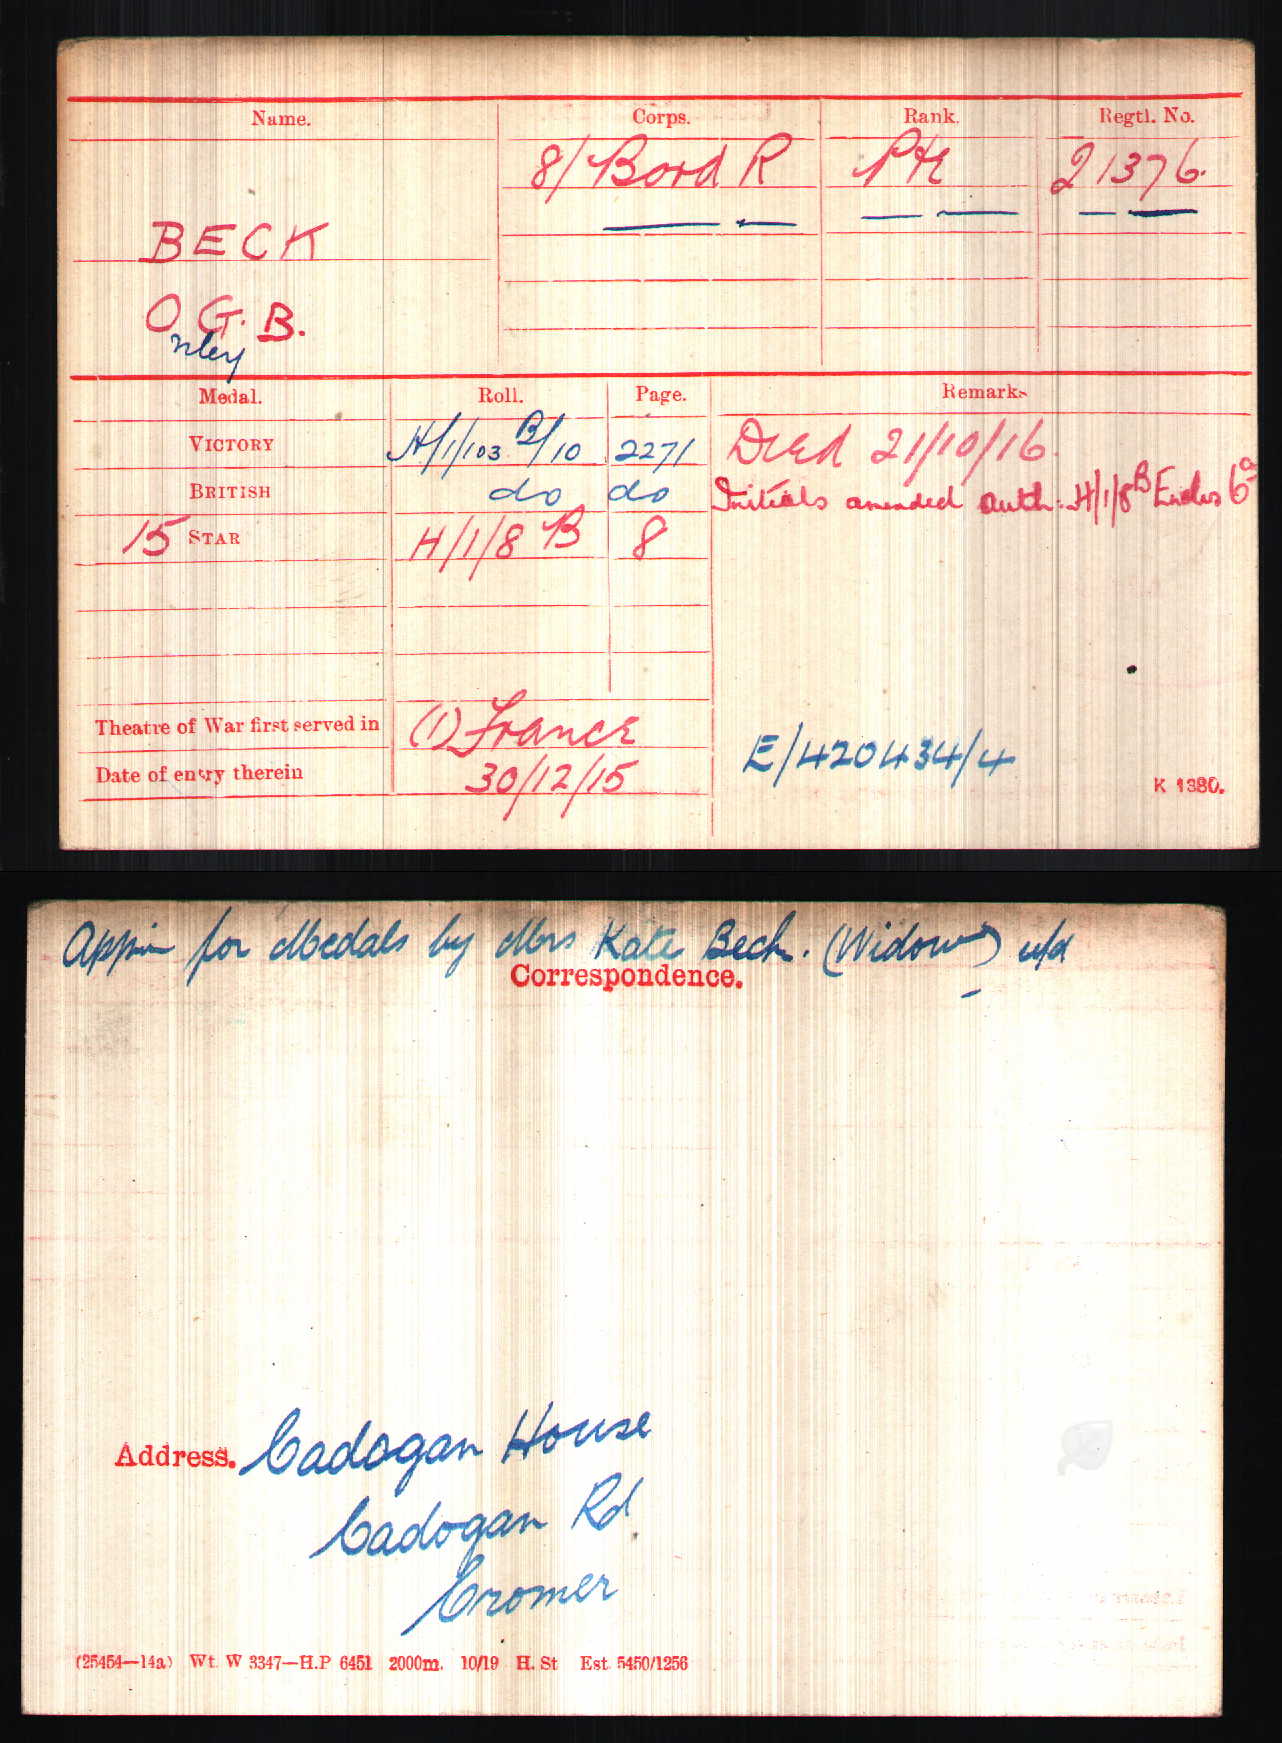 Name. Corps. Rank. Regtl. No.
8/Bord R Pte 21376.
BECK
O. G. B.
nley
Medal. Roll. Page. Remarks
VICTORY H/1/103 B/10 2271 Died 21/10/16.
BRITISH do do Initials amended auth: H/1/8 B Enclos 6a
15 STAR H/1/8 B 8
Theatre of War first served in (1) France
Date of entry therein 30/12/15
E/420434/4
K 1380.
Appn for Medals by Mrs Kate Beck. (Widow)
Correspondence.
Address. Cadogan House
Cadogan Rd
Cromer
(25454—14a) Wt. W 3347—H.P 6451 2000m. 10/19 H. St Est. 5450/1256